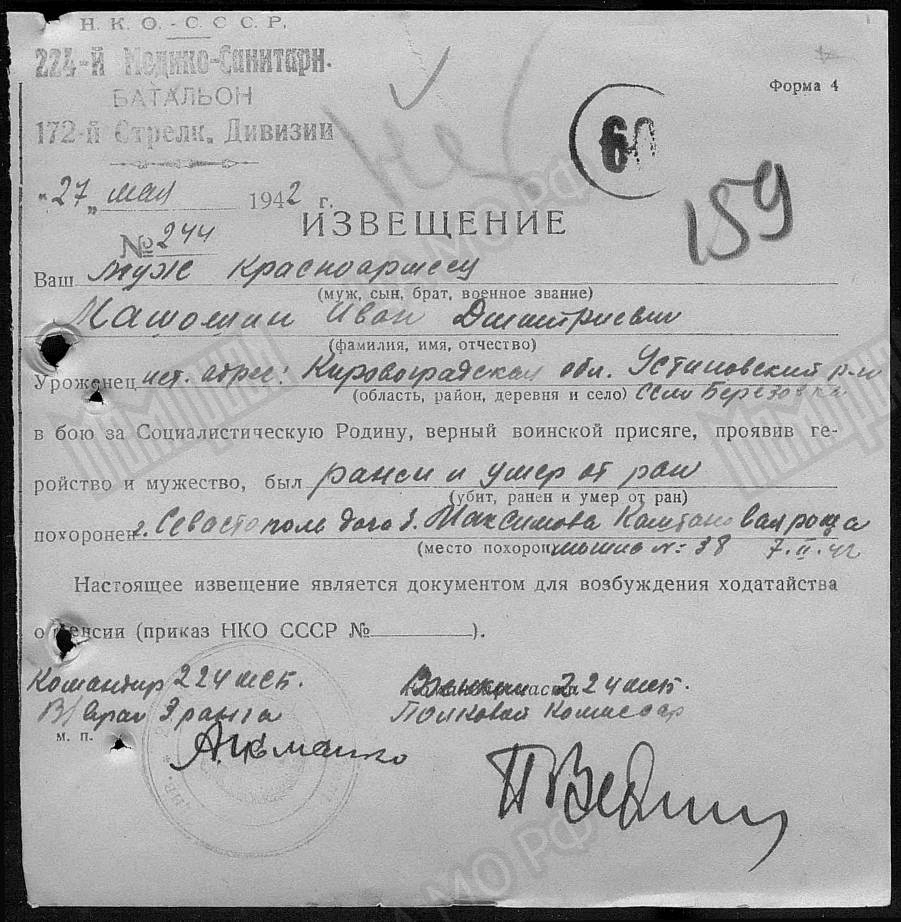 Н. К. О. - С. С. С. Р.
224-й Медико-Санитарн.
БАТАЛЬОН
172-й Стрелк. Дивизии
Форма 4
60
159
Не
„27„ мая 1942 г.
ИЗВЕЩЕНИЕ
№ 244
Ваш муж красноармеец
(муж, сын, брат, военное звание)
Иван Дмитриевич
(фамилия, имя, отчество)
Уроженец адрес: Кировоградская обл. Устиновский р-н
(область, район, деревня и село) село Березовка
в бою за Социалистическую Родину, верный воинской присяге, проявив ге-
ройство и мужество, был ранен и умер от ран
(убит, ранен и умер от ран)
похоронен г. Севастополь дача б. Максимова роща
(место похорон могила №: 38 7.II.42
Настоящее извещение является документом для возбуждения ходатайства
о пенсии (приказ НКО СССР №).
Командир 224 мсб. 224 мсб.
В/врач 3 ранга Полковой Комиссар
м. п.
Мемориал
МО РФ